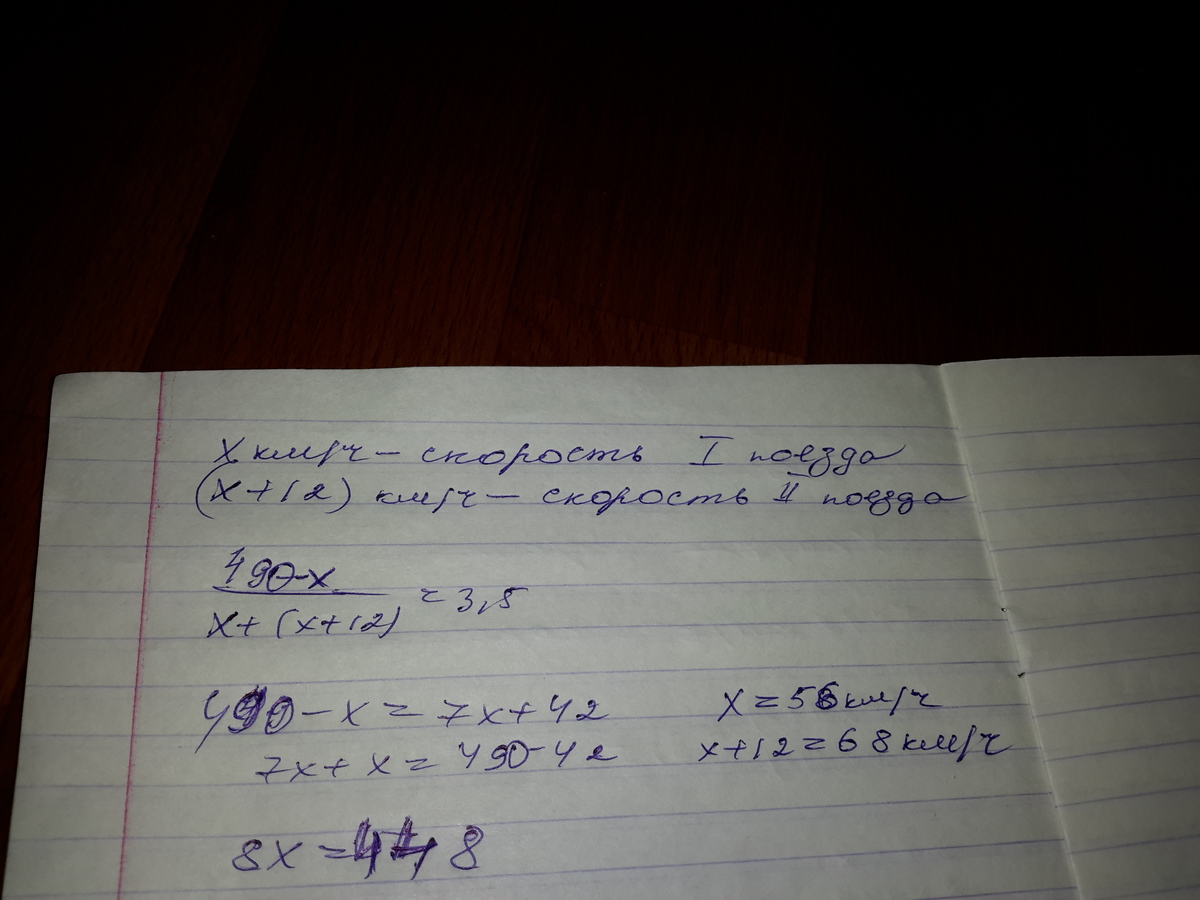 x км/ч – скорость I поезда
(x+12) км/ч – скорость II поезда
490-x
x+(x+12)
= 3,5
490 – x = 7x+42
7x + x = 490-42
8x = 448
x = 56 км/ч
x+12 = 68 км/ч